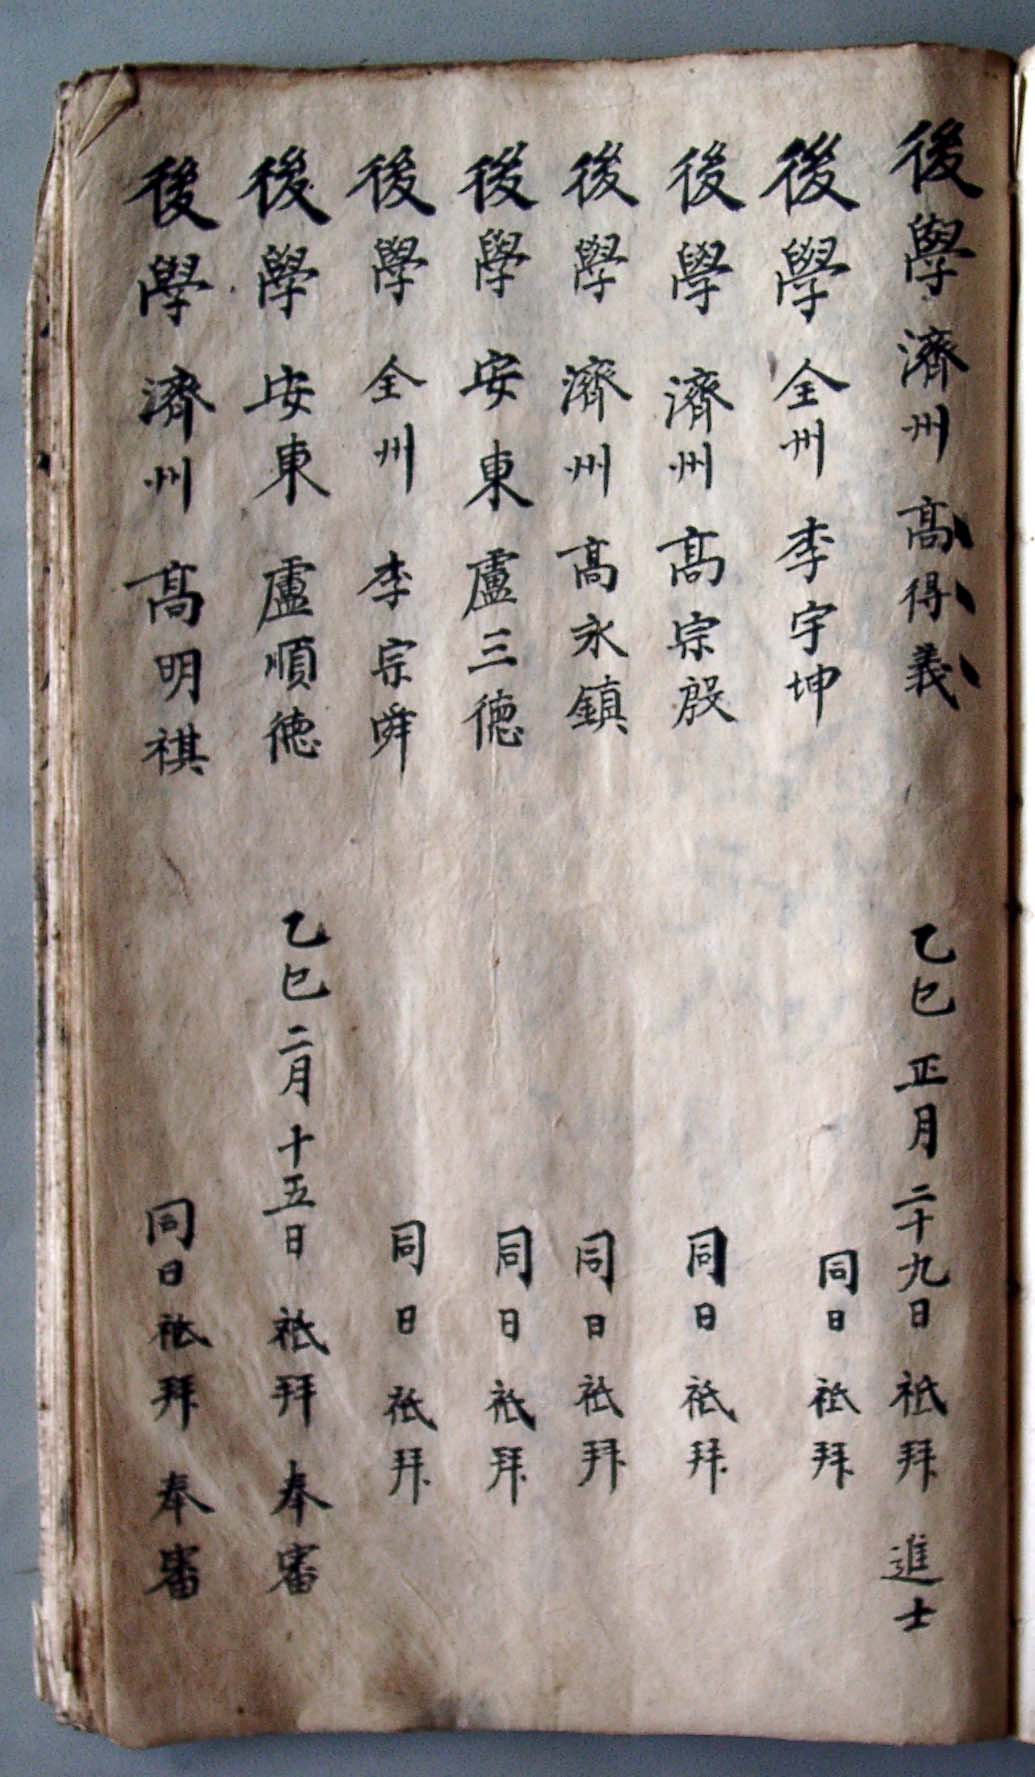 後學 濟州 高得義 乙巳 正月 二十九日 祗拜 進士
後學 全州 李宇坤 同日 祗拜
後學 濟州 高宗殷 同日 祗拜
後學 濟州 高永鎮 同日 祗拜
後學 安東 盧三德 同日 祗拜
後學 全州 李宗舜 同日 祗拜
後學 安東 盧順德 乙巳 二月 十五日 祗拜 奉審
後學 濟州 高明祺 同日 祗拜 奉審